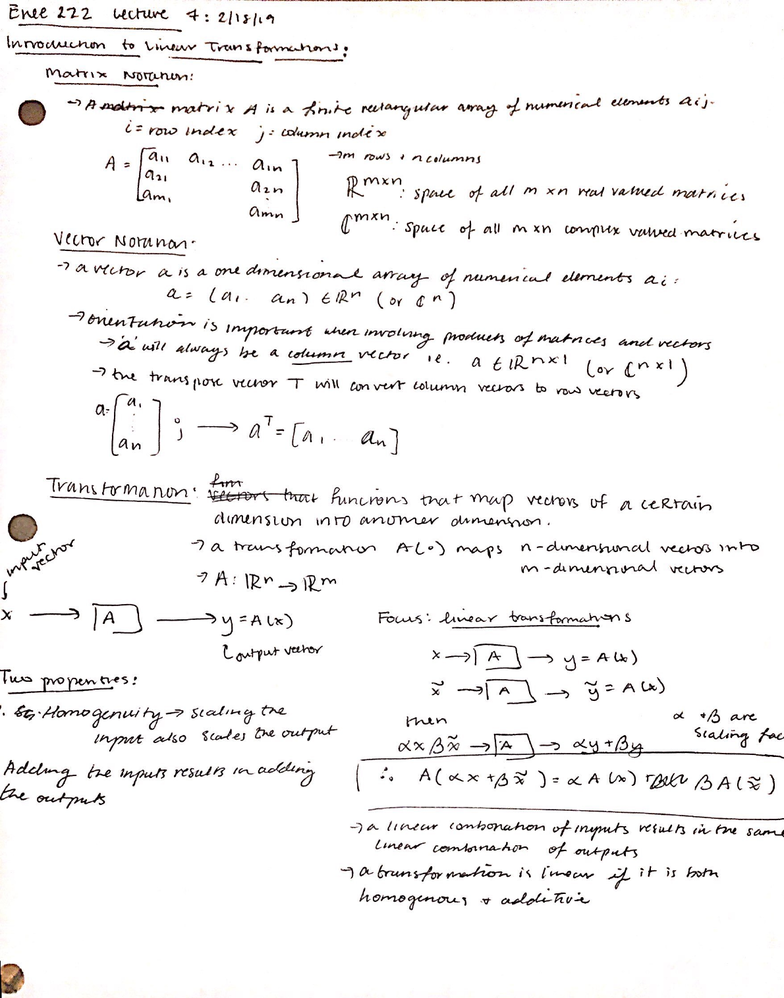 Enee 222 Lecture 7: 2/18/19
Introduction to Linear Transformations:
Matrix Notation:
→ A matrix matrix A is a finite rectangular array of numerical elements aij.
i = row index j = column index
A = [a11 a12 ... a1n
a21 a2n
am1 amn]
→ m rows + n columns
ℝ^mxn: space of all m xn real valued matrices
ℂ^mxn: space of all m xn complex valued matrices
Vector Notation:
→ a vector a is a one dimensional array of numerical elements ai:
a = (a1. an) ∈ ℝ^n (or ℂ^n)
→ orientation is important when involving products of matrices and vectors
→ 'a' will always be a column vector i.e. a ∈ ℝ^nx1 (or ℂ^nx1)
→ the transpose vector T will convert column vectors to row vectors
a = [a1 ⋮ an] ; → a^T = [a1 .. an]
Transformation: vectors that functions that map vectors of a certain
dimension into another dimension.
→ a transformation A(·) maps n-dimensional vectors into
m-dimensional vectors
→ A: ℝ^n → ℝ^m
input vector
x → [A] → y = A(x)
output vector
Two properties:
1. Homogenuity → scaling the
input also scales the output
Adding the inputs results in adding
the outputs
Focus: linear transformations
x → [A] → y = A(x)
x̃ → [A] → ỹ = A(x)
then
αxβx̃ → [A] → αy+βy
α + β are
scaling fac
∴ A(αx+βx̃) = αA(x) + βA(x̃)
→ a linear combonation of inputs results in the same
linear combination of outputs
→ a transformation is linear if it is both
homogenous + additive